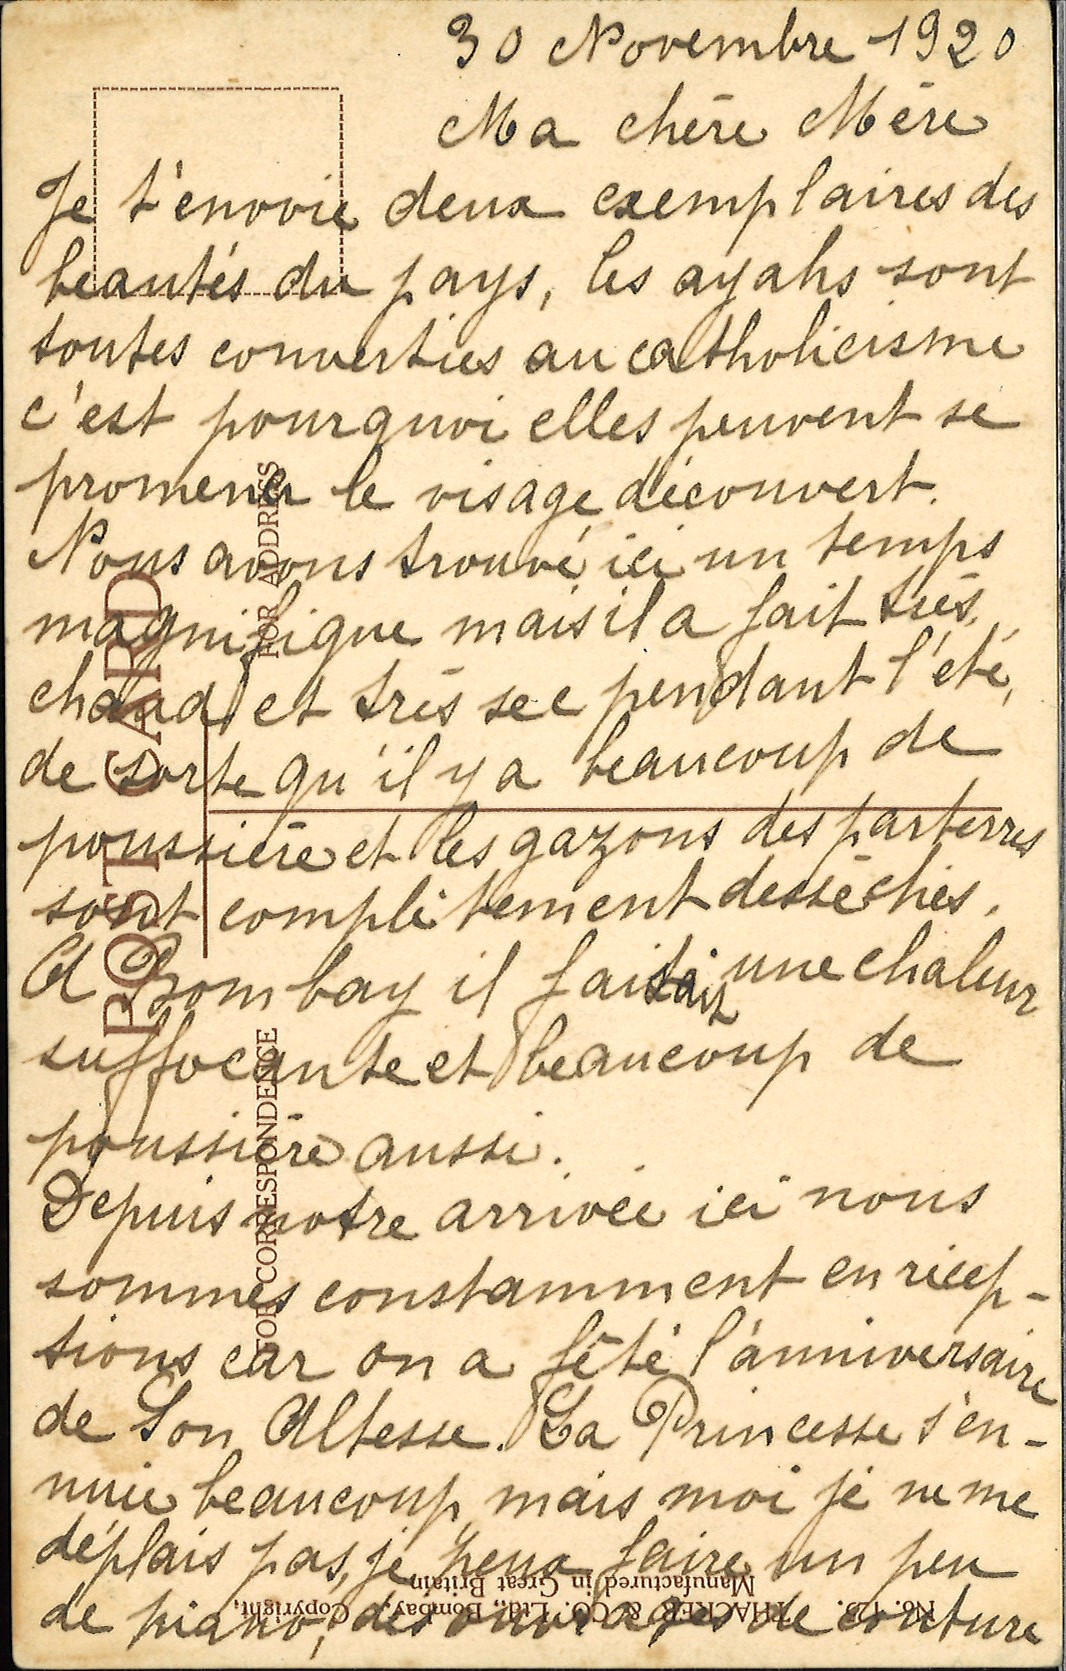 30 Novembre 1920
Ma chère Mère
Je t'envoie deux exemplaires des
beautés du pays, les ayahs sont
toutes converties au catholicisme
c'est pourquoi elles peuvent se
promener le visage découvert.
Nous avons trouvé ici un temps
magnifique mais il a fait très
chaud et très sec pendant l'été,
de sorte qu'il y a beaucoup de
poussière et les gazons des parterres
sont complètement desséchés.
A Bombay il faisait une chaleur
suffocante et beaucoup de
poussière aussi.
Depuis notre arrivée ici nous
sommes constamment en récep-
tions car on a fêté l'anniversaire
de Son Altesse. La Princesse s'en-
nuie beaucoup, mais moi je ne me
déplais pas, je peux faire un peu
de piano, des ouvrages de couture
POST CARD
FOR ADDRESS
FOR CORRESPONDENCE
No. 123. THACKER & CO. Ltd., Bombay. Copyright,
Manufactured in Great Britain